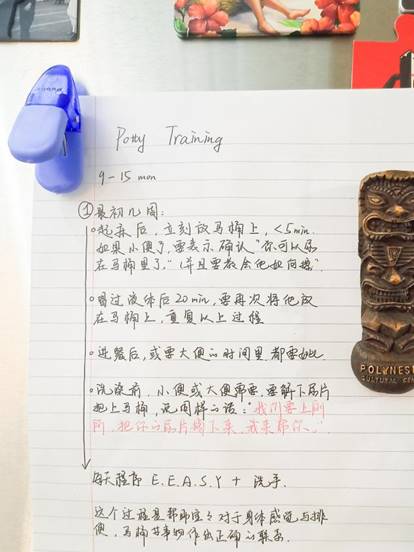 Potty Training
9-15 mon
①最初几周:
•起床后,立刻放马桶上,<5min.
如果小便了,要表示确认"你可以尿
在马桶里了。"(并且要教会他如何擦)
•喝过液体后20min,要再次将他放
在马桶上,重复以上过程
•进餐后,或要大便的时间里都要如此
•洗澡前,小便或大便需要,要解下尿片
把上马桶,说同样的话:"我们要上厕
所,把你的尿片摘下来,我来帮你。"
每天程序 E.E.A.S.Y + 洗手.
这个过程是帮助宝宝对于身体感觉与排
便,马桶等事物作出正确的联系.
POLYNESIAN
CULTURAL CEN